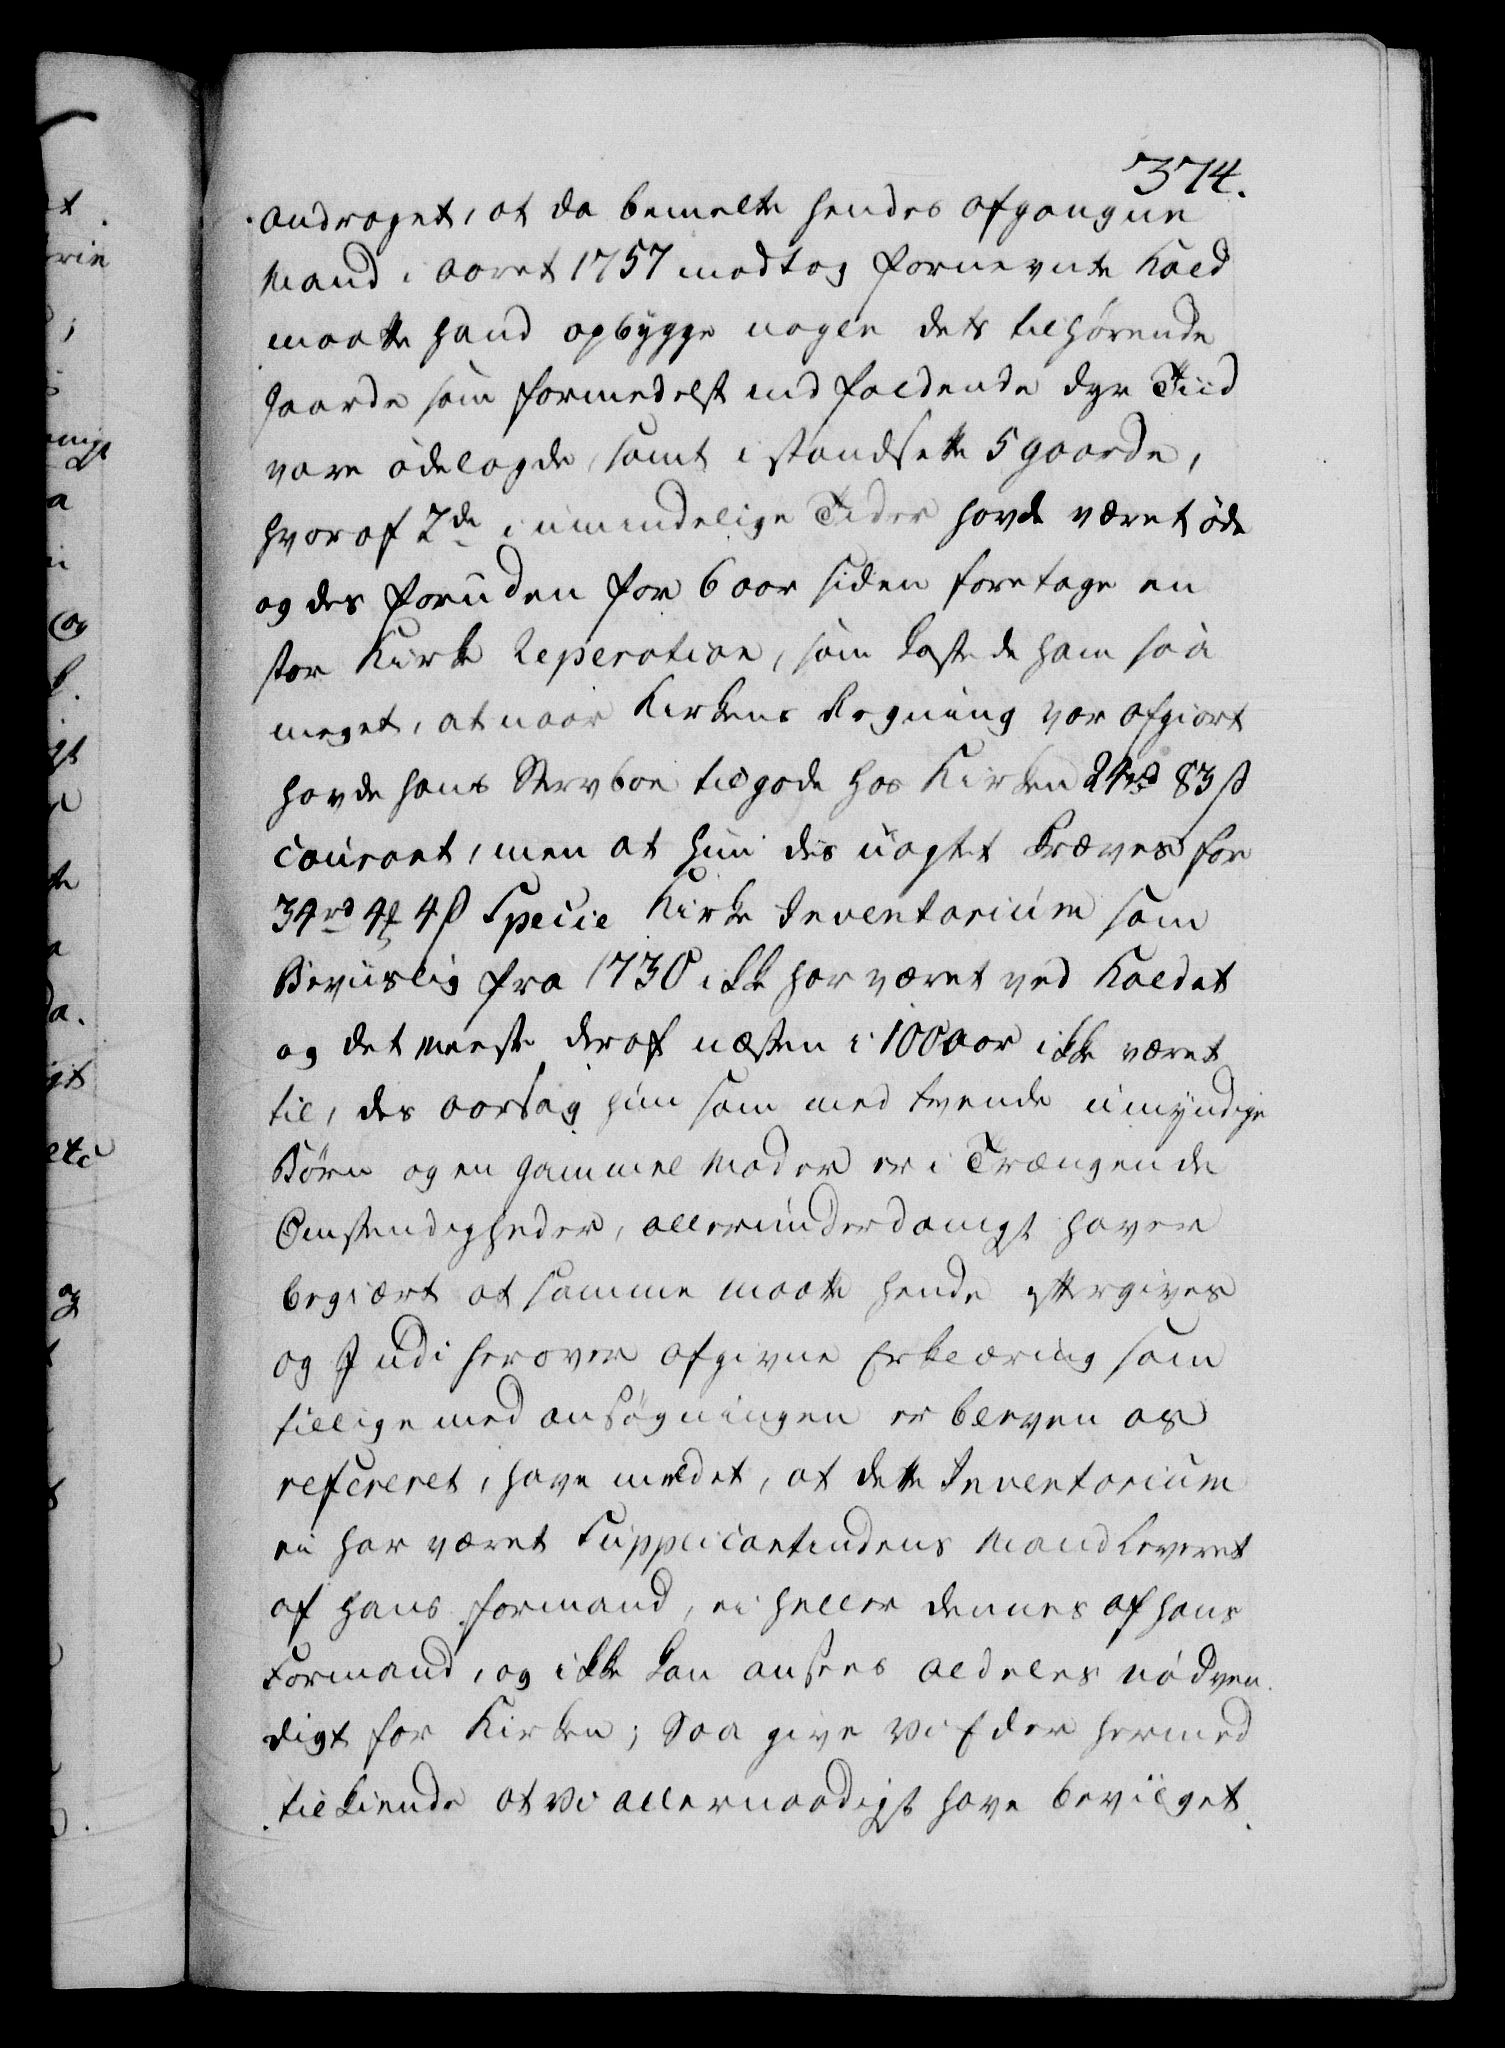 374.
andraget, at da bemelte hendes afgangne
Mand i Aaret 1757 modtog fornevnte Kald
maatte hand opbygge nogle dets tilhørende
Gaarde som formedelst indfaldende dyr Tiid
vare ødelagde, samt i standsette 5 gaarde,
hvoraf 2de i umindelige Tider havde været øde
og des foruden for 6 aar siden foretage en
stor Kirke Reperation, som kostede ham saa
meget, at naar Kirkens Regning var afgiort
havde hans Stervboe tilgode hos Kirken 24rd 83 ß
courant, men at hun des uagtet kræves for
34rd 4 4ß Specie Kirke Inventarium som
Beviislig fra 1730 ikke har været ved Kaldet
og det meeste deraf næsten i 100 aar ikke været
til, des aarsag hun som med tvende umyndige
Børn og en gammel Moder er i Trængende
Omstendigheder, allerunderdanigst haver
begiært at samme maatte hende eftergives
og I udi herover afgivne Erklæring som
tillige med ansøgningen er bleven os
refereret, have meldet, at dette Inventarium
ei har været Supplicantindens Mand leveret
af hans formand, ei heller dennes af hans
Formand, og ikke kan ansees aldeles nødven
digt for Kirken; Saa give Vi Eder hermed
tilkiende at Vi allernaadigst have bevilget